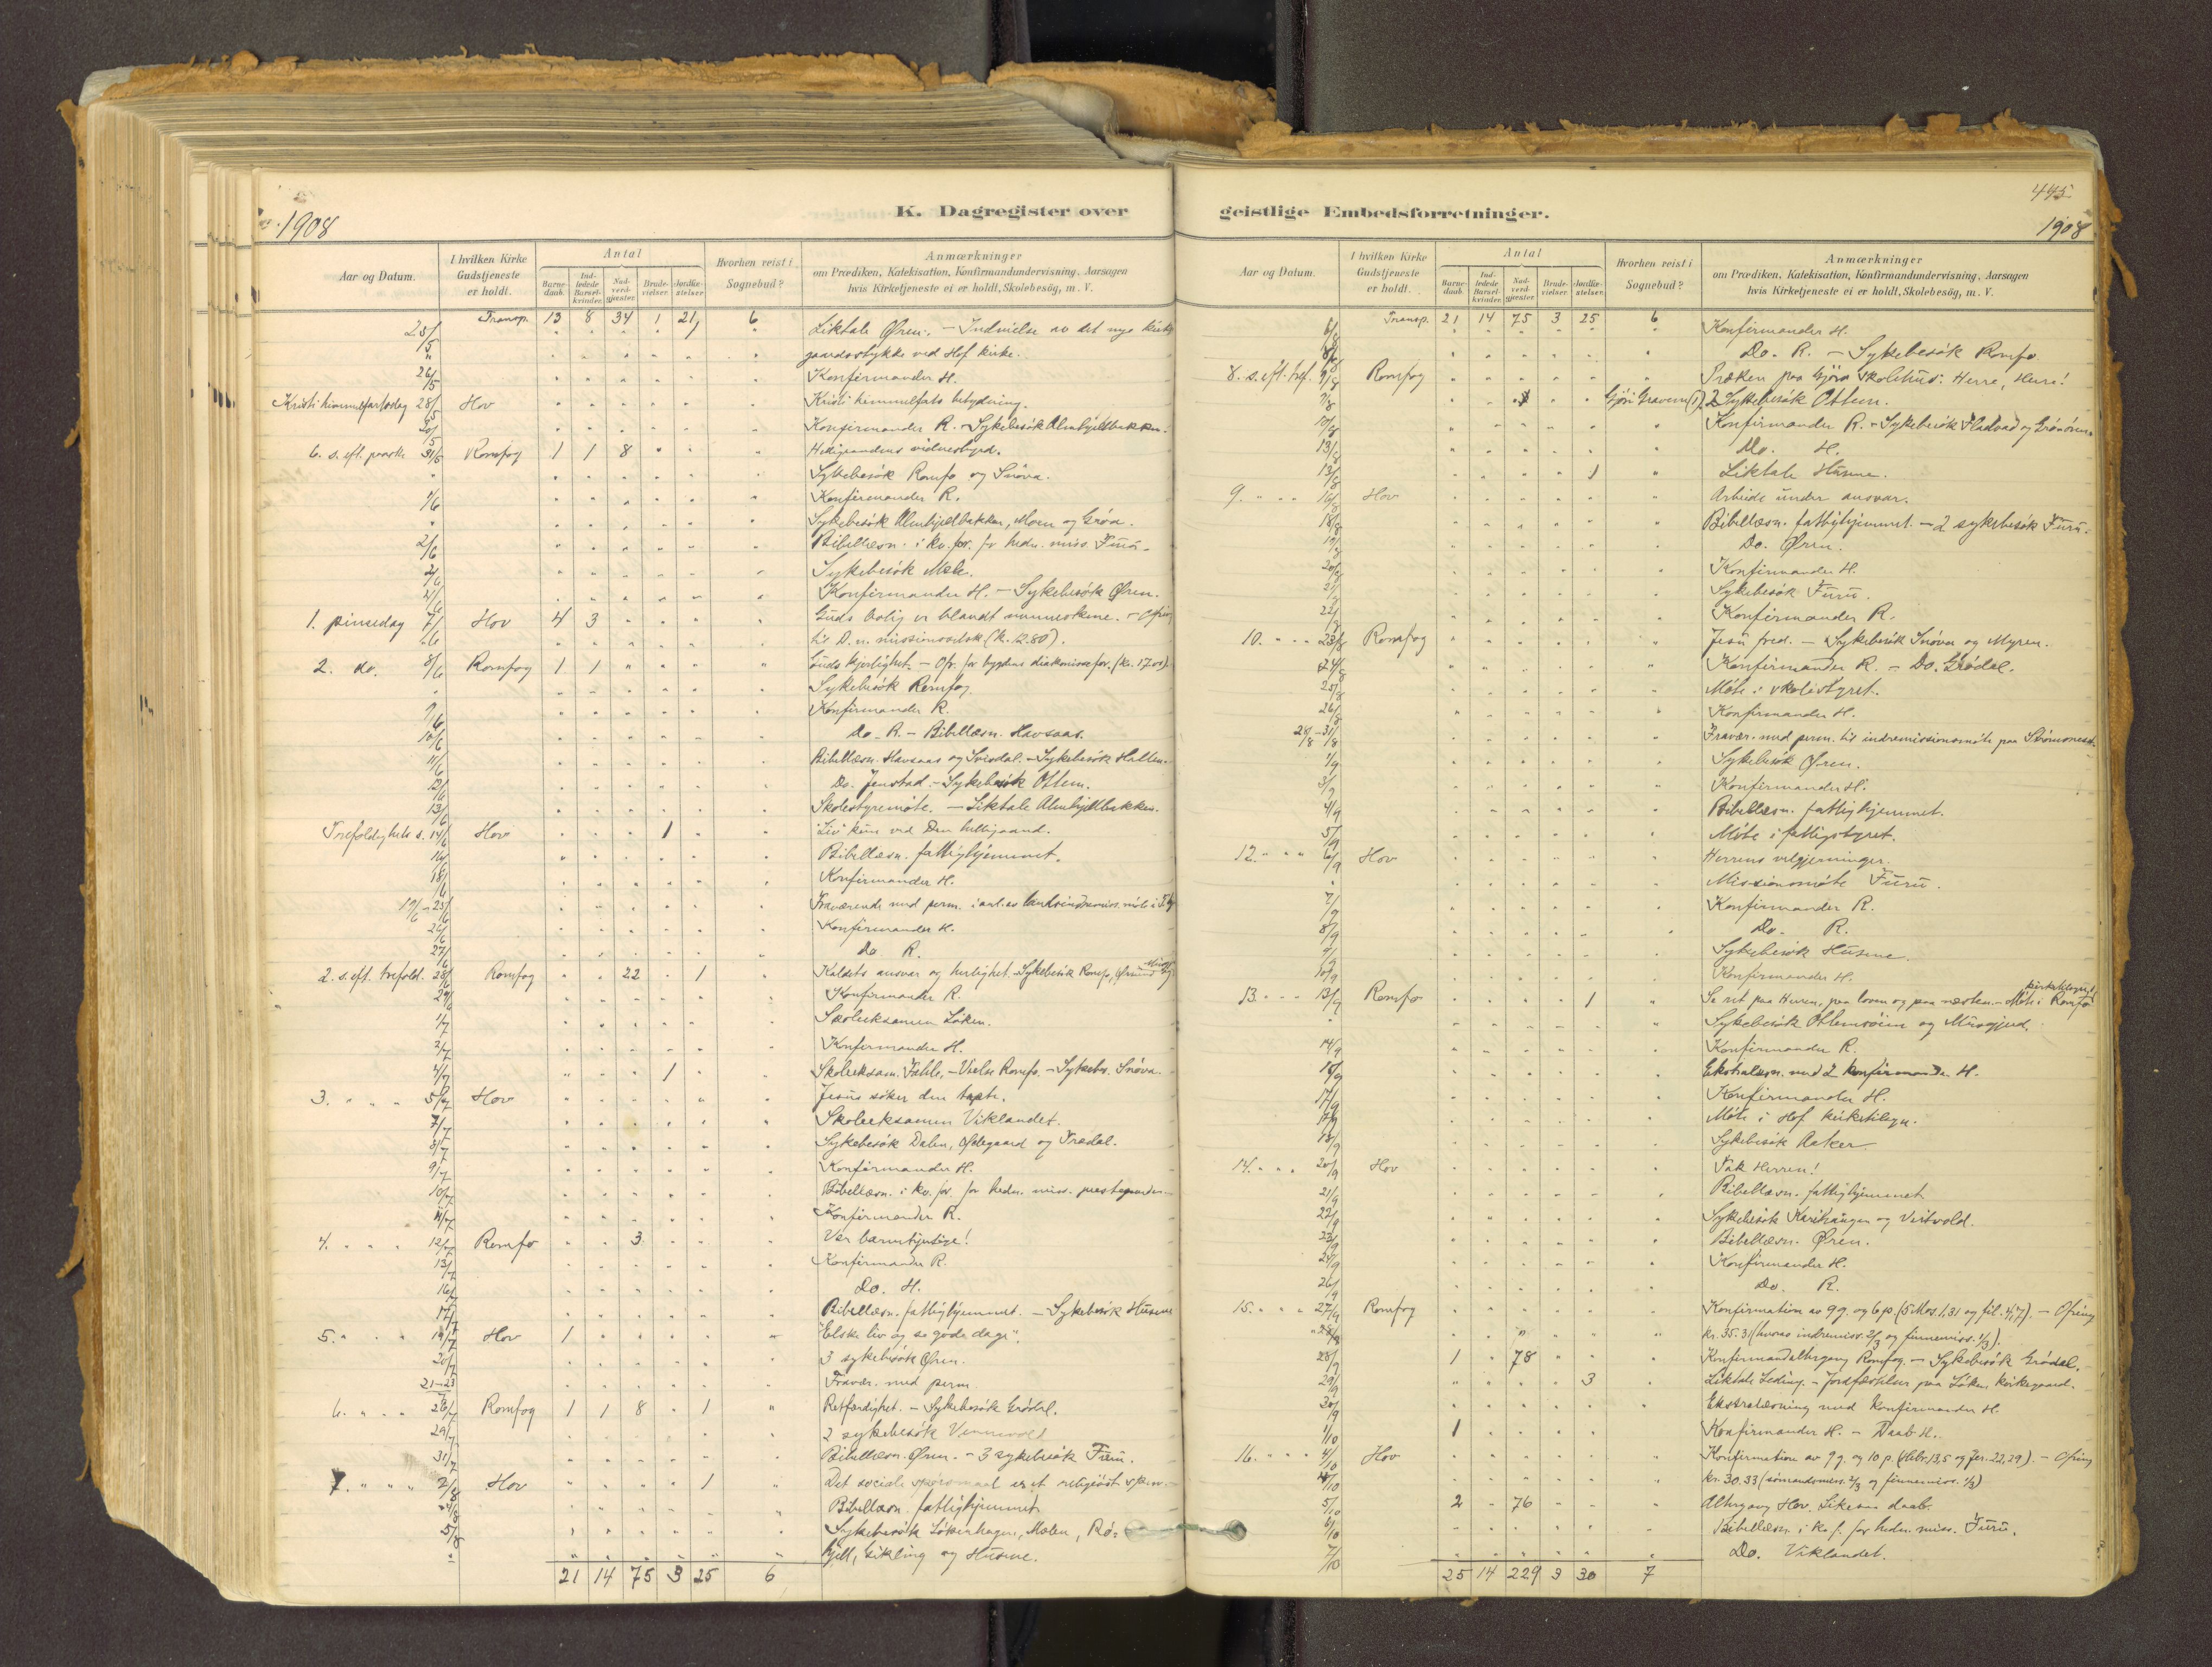 1908
K. Dagregister over
Aar og Datum.
I hvilken Kirke Gudstjeneste er holdt.
Antal
Barnedaab.
Indledede Barselkvinder.
Nadverdgjæster.
Brudevielser.
Jordfæstelser.
Hvorhen reist i Sognebud?
Anmærkninger
om Prædiken, Katekisation, Konfirmandundervisning, Aarsagen
hvis Kirketjeneste ei er holdt, Skolebesög, m. V.
Transp. 13 8 34 1 21 6
25/5 Liktale Øren. — Indvielse av det nye kirke
" gaardsstykke ved Hof kirke.
26/5 Konfirmander H.
Kristi himmelfartsdag 28/5 Hov Kristi himmelfarts betydning.
30/5 Konfirmander R. - Sykebesøk Almhjellbakken.
6. s. eft. paaske 31/5 Romfog 1 1 8 Helligaandens vidnesbyrd.
" Sykebesøk Romfo og Snøva.
1/6 Konfirmander R.
" Sykebesøk Almhjellbakken, Moen og Grøa.
2/6 Bibellæsn. i kv. for. for hedn. miss. Furu.
2/6 Sykebesøk Mæle.
4/6 Konfirmander H. — Sykebesøk Øren.
1. pinsedag 7/6 Hov 4 3 Guds bolig er blandt menneskene. - Ofring
til D. n. missionsselsk (k. 12.80).
2. do. 8/6 Romfog 1 1 Guds kjærlighet. — Ofr. for bygdens diakonissefor. (kr. 17.00).
" Sykebesøk Romfog
9/6 Konfirmander R.
10/6 do. R. — Bibellæsn. Havsaas.
11/6 Bibellæsn. Havsaas og Svisdal. - Sykebesøk Hallen.
12/6 Do. Jenstad. - Sykebesøk Ottem.
13/6 Skolestyremøte. — Liktale Almhjellbakken.
Trefoldighets s. 14/6 Hov 1 Liv kun ved Den helligaand.
16/6 Bibellæsn. fattighjemmet.
18/6 Konfirmander H.
19/6-25/6 Fraværende med perm. i anl. av landsindremiss. møte i
26/6 Konfirmander H.
27/6 do R.
2. s. eft. trefold. 28/6 Romfog 22 1 Kaldets ansvar og herlighet. - Sykebesøk Romfo,
29/6 Konfirmander R.
1/7 Skoleeksamen Løken.
2/7 Konfirmander H.
4/7 1 Skoleeksam. Fahle. — Vielse Romfo. - Sykebes. Snøva.
3. " " " 5/7 Hov Jesus søker den tapte.
7/7 Skoleeksamen Viklandet.
8/7 Sykebesøk Dalen, Ødegaard og Trædal.
9/7 Konfirmander H.
10/7 Bibellæsn. i kv. for. for hedn. miss. prestegaarden.
11/7 Konfirmander R.
4. " " " 12/7 Romfo 3 Vær barmhjertige!
13/7 Konfirmander R.
16/7 Do. H.
17/7 Bibellæsn. fattighjemmet. — Sykebesøk Husene
5. " " " 19/7 Hov 1 "Elske liv og se gode dage".
20/7 3 sykebesøk Øren.
21-23/7 Fravær. med perm.
6. " " " 26/7 Romfog 1 1 8 1 Retfærdighet. — Sykebesøk Grødal.
29/7 2 sykebesøk Vennevold
31/7 Bibellæsn. Øren. — 3 sykebesøk Furu.
7. " " " 2/8 Hov 1 Det sociale spørsmaal er et religiøst spørs.
4/8 Bibellæsn. fattighjemmet
5/8 Sykebesøk Løkenhagen, Mælen, Rø-
" kjell, Gikling og Husene.
21 14 75 3 25 6
445
geistlige Embedsforretninger.
1908
Aar og Datum.
I hvilken Kirke Gudstjeneste er holdt.
Antal
Barnedaab.
Indledede Barselkvinder.
Nadverdgjæster.
Brudevielser.
Jordfæstelser.
Hvorhen reist i Sognebud?
Anmærkninger
om Prædiken, Katekisation, Konfirmandundervisning, Aarsagen
hvis Kirketjeneste ei er holdt, Skolebesög, m. V.
Transp. 21 14 75 3 25 6
6/8 Konfirmander H.
8/8 Do. R. — Sykebesøk Romfo
8. s. eft. tref. 9/8 Romfog Præken paa Gjøra skolehus: Herre, Herre!
9/8 Gjøri Gravem (1) 2 Sykebesøk Ottem.
10/8 Konfirmander R. - Sykebesøk Hladvad og Grøaøren
13/8 Do. H.
13/8 1 Liktale Husene.
9. " " " 16/8 Hov Arbeide under ansvar.
18/8 Bibellæsn. fattighjemmet. — 2 sykebesøk Furu.
19/8 Do. Øren.
20/8 Konfirmander H.
21/8 Sykebesøk Furu.
22/8 Konfirmander R.
10. " " " 23/8 Romfog Jesu fred. — Sykebesøk Snøva og Myren.
24/8 Konfirmander R. — Do. Grødal.
25/8 Møte i skolestyret.
26/8 Konfirmander H.
28/8-31/8 Fravær. med perm. til indremissionsmøte paa Strømsnes.
1/9 Sykebesøk Øren.
3/9 Konfirmander H.
4/9 Bibellæsn. fattighjemmet.
5/9 Møte i fattigstyret.
12. " " " 6/9 Hov Herrens velgjerninger.
" Missionsmøte Furu.
7/9 Konfirmander R.
8/9 Do. R.
9/9 Sykebesøk Husene.
10/9 Konfirmander H.
13. " " " 13/9 Romfo 1 Se ret paa Herren, paa loven og paa næsten. - Møte i Romfo kirketilsyn
" Sykebesøk Ottemsøien og Musgjerd.
14/9 Konfirmander R.
15/9 Ekstralæsn. med 2 konfirmander H.
17/9 Konfirmander H.
17/9 Møte i Hof kirketilsyn.
18/9 Sykebesøk Aaker
14. " " " 20/9 Hov Tak Herren!
21/9 Bibellæsn. fattighjemmet
22/9 Sykebesøk Karihaugen og Vistvold.
23/9 Bibellæsn. Øren.
24/9 Konfirmander H.
26/9 Do. R.
15. " " " 27/9 Romfog Konfirmation av 9 g. og 6 p. (5 Mos. 1,31 og Fil. 4,7). — Ofring
kr. 35.31 (hvoraf indremiss. 2/3 og finnemiss. 1/3).
28/9 1 78 Konfirmandaltergang Romfog. — Sykebesøk Grødal.
29/9 3 Liktale Leding. - Jordfæstelser paa Løken kirkegaard.
30/9 Ekstralæsning med konfirmander H.
1/10 1 Konfirmander H. — Daab H.
16. " " " 4/10 Hov Konfirmation av 9 g. og 10 p. (Hebr. 13,5 og Jer. 22,29). — Ofring
4/10 kr. 30.33 (sømandsmiss. 2/3 og finnemiss. 1/3)
5/10 2 76 Altergang Hov. Likesaa daab.
6/10 Bibellæsn. i k. f. for hedn. miss. Furu.
7/10 Do. Viklandet.
25 14 229 3 30 7